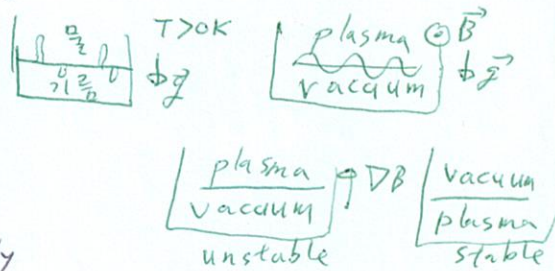 물
기름
T>0K
g
plasma
vacuum
⊙ B⃗
g⃗
plasma
vacuum
unstable
∇B
vacuum
plasma
stable
y